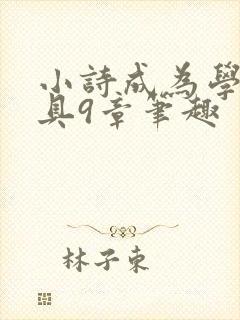 小詩成為學
具9章筆趣
林子東